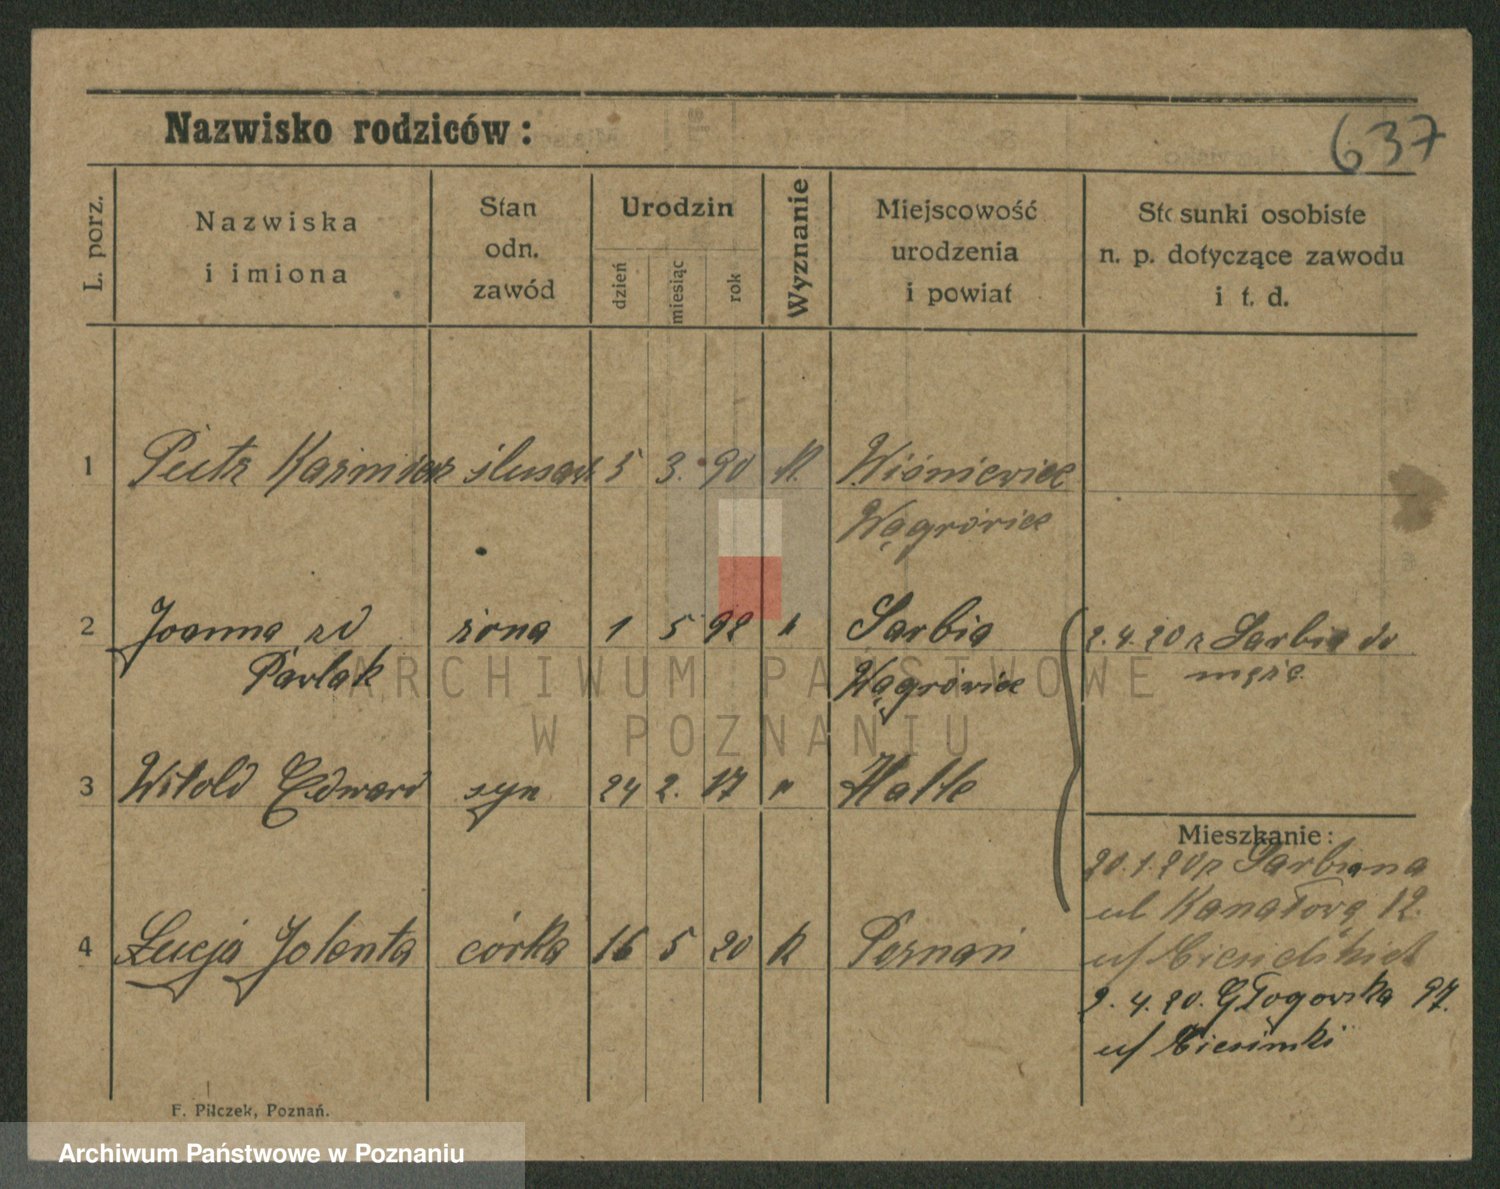 Nazwisko rodziców:
637
L. porz.
Nazwiska
i imiona
Stan
odn.
zawód
Urodzin
dzień
miesiąc
rok
Wyznanie
Miejscowość
urodzenia
i powiat
Stosunki osobiste
n. p. dotyczące zawodu
i t. d.
1 Piotr Kazimierz ślusarz 5 3. 90 K. Wiśniewiec
Wągrówiec
2 Joanna zd żona 1 5 98 " Sarbia 2.4.20 z Sarbia do
Pawlak Wągrówiec męża
3 Witold Edward syn 24 2. 17 " Halle
Mieszkanie:
20.1.20 z Sarbiana
ul Kanałowa 12.
4 Łucja Jolenta córka 16 5 20 K Poznań u/
2. 4. 20. Głogowska 97.
u/
F. Pilczek, Poznań.
ARCHIWUM PAŃSTWOWE
W POZNANIU
Archiwum Państwowe w Poznaniu